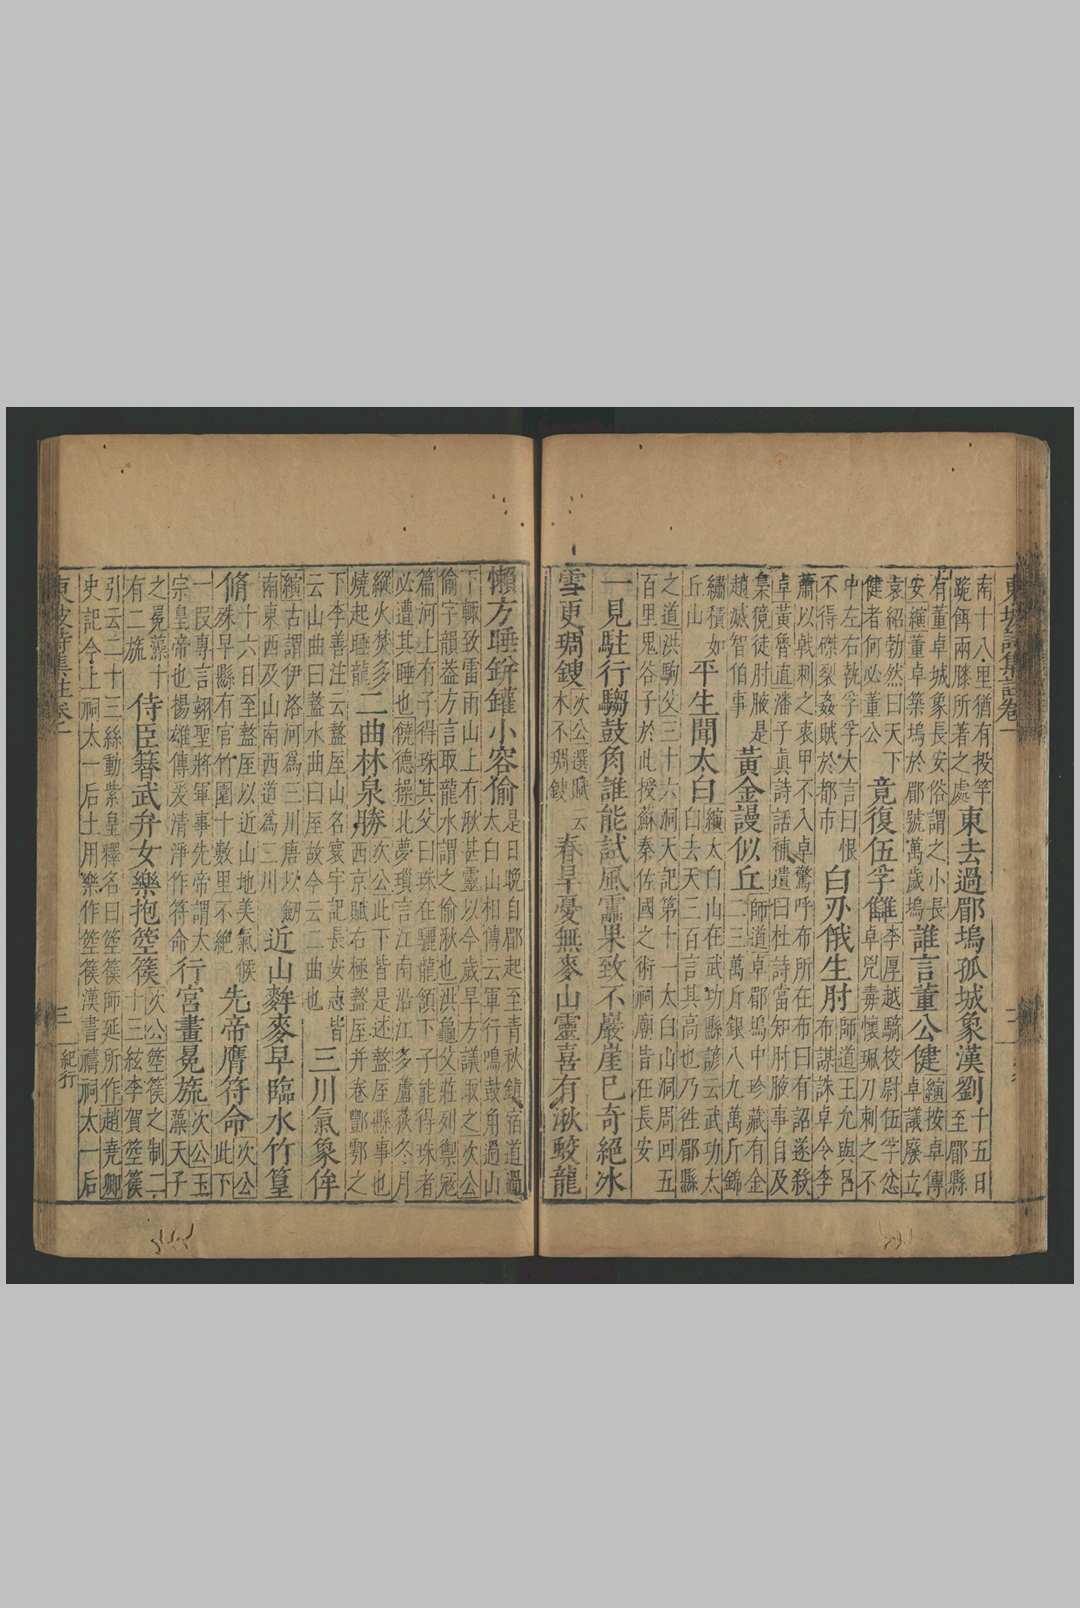 南十八里猶有投竿
跪餌兩膝所著之處
東去過郿塢孤城象漢劉
十五日至郿縣
有董卓城象長安俗謂之小長
安
縯董卓築塢於郿號萬歲塢
誰言董公健
縯按卓傳卓議廢立
袁紹勃然曰天下
健者何必董公
竟復伍孚讎
李厚越騎校尉伍孚忿
卓兇毒懷珮刀刺之不
中左右執孚孚大言曰恨
不得磔裂姦賊於都市
白刃俄生肘
師道王允與呂
布謀誅卓令李
肅以戟刺之衷甲不入卓驚呼布所在布曰有詔遂殺
卓黃魯直潘子真詩話補遺曰杜詩當知肘腋事自及
梟獍徒肘腋是
趙戚智伯事
黃金謾似丘
師道卓郿塢中珍藏有金
二三萬斤銀八九萬斤錦
繡積如
丘山
平生聞太白
縯太白山在武功縣諺云武功太
白去天三百言其高也乃徃郿縣
之道洪駒父三十六洞天記第十一太白山洞周回五
百里鬼谷子於此授蘇秦佐國之術祠廟皆在長安
一見駐行騶鼓角誰能試風雷果致不巖崖已奇絕冰
雪更琱鎪
次公選賦云
木不琱鎪
春旱憂無麥山靈喜有湫蛟龍
懶方睡缾罐小容偷
是日晚自郿起至青秋鎮宿道過
太白山相傳云軍行鳴鼓角過山
下輒致雷雨山上有湫甚靈以今歲旱方議取之次公
偷字韻葢方言取龍水謂之偷湫也洪龜父莊列禦寇
篇河上有子得珠其父曰珠在驪龍頷下子能得珠者
必遭其睡也饒德操北夢瑣言江南沿江多蘆荻冬月
縱火焚多
燒起睡龍
二曲林泉勝
次公此下皆是述盩厔縣事也
西京賦右極盩厔并卷酆鄠之
下李善注云盩厔山名寰宇記長安志皆
云山曲曰盩水曲曰厔故今云二曲也
三川氣象侔
縯古謂伊洛河為三川唐以劒
南東西及山南西道為三川
近山麰麥早臨水竹篁
脩
十六日至盩厔以近山地美氣候
殊早縣有官竹園十數里不絕
先帝膺符命
次公此下
一叚專言翊聖將軍事先帝謂太
宗皇帝也揚雄傳爰清淨作符命
行宮畫冕旒
次公玉
藻天子
之冕藻十
有二旒
侍臣簪武弁女樂抱箜篌
次公箜篌之制二
十三絃李賀箜篌
引云二十三絲動紫皇釋名曰箜篌師延所作趙堯卿
史記今上祠太一后土用樂作箜篌漢書禱祠太一后
東坡詩集註卷一
三
紀行